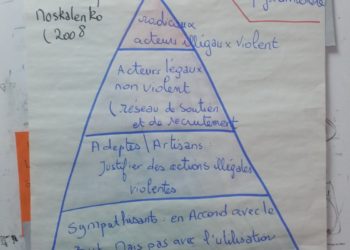 Moskalenko
(2008
Pyramidale
radicaux
acteurs illégaux violent
Acteurs légaux
non violent
(réseau de Soutien
et de recrutement
Adeptes\Artisans:
Justifier des actions illégales
violentes
Sympathisants: en Accord avec le
Mais pas avec l'utilisation